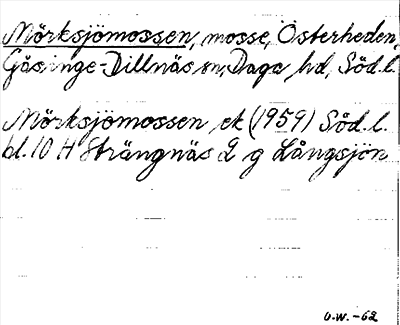 Mörksjömossen, mosse, Österheden,
Gåsinge-Dillnäs sn, Daga hd, Söd.l.
Mörksjömossen ek (1959) Söd.l.
bl. 10 H Strängnäs 2 g Långsjön
O.W. -62